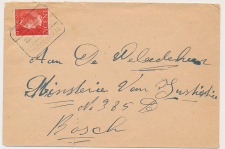 Aan De Weledele
Ministerie Van Justitie
No 985 B
Bosch